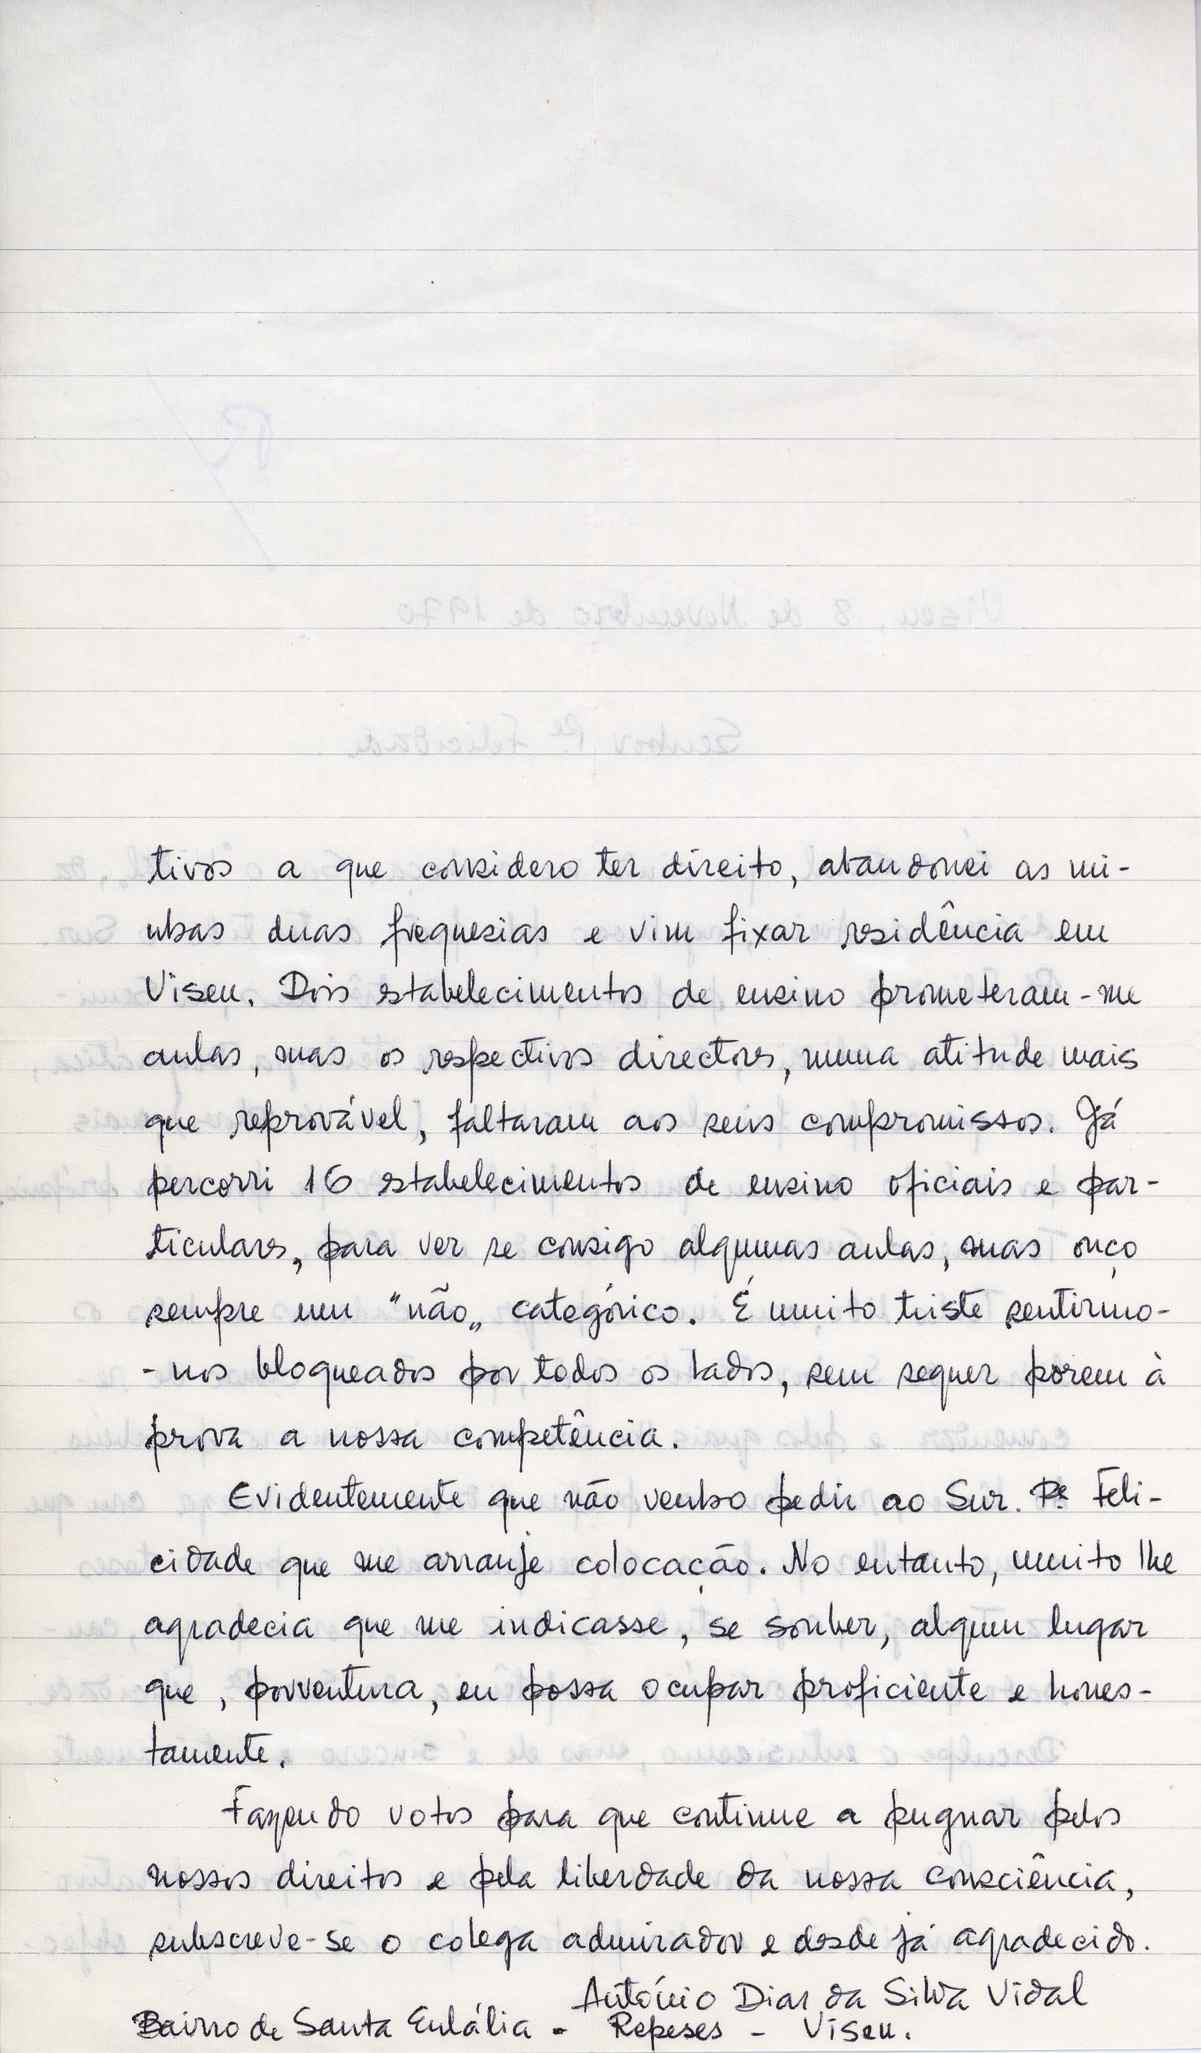 tivos a que considero ter direito, abandonei as mi-
nhas duas freguesias e vim fixar residência em
Viseu. Dois estabelecimentos de ensino prometeram-me
aulas, mas os respectivos directores, numa atitude mais
que reprovável, faltaram aos seus compromissos. Já
percorri 16 estabelecimentos de ensino oficiais e par-
ticulares, para ver se consigo algumas aulas, mas ouço
sempre um "não„ categórico. É muito triste sentirmo-
-nos bloqueados por todos os lados, sem sequer porem à
prova a nossa competência.
Evidentemente que não venho pedir ao Snr. Pe. Feli-
cidade que me arranje colocação. No entanto, muito lhe
agradecia que me indicasse, se souber, algum lugar
que, porventura, eu possa ocupar proficiente e hones-
tamente.
Fazendo votos para que continue a pugnar pelos
nossos direitos e pela liberdade da nossa consciência,
subscreve-se o colega admirador e desde já agradecido.
António Dias da Silva Vidal
Bairro de Santa Eulália - Repeses - Viseu.